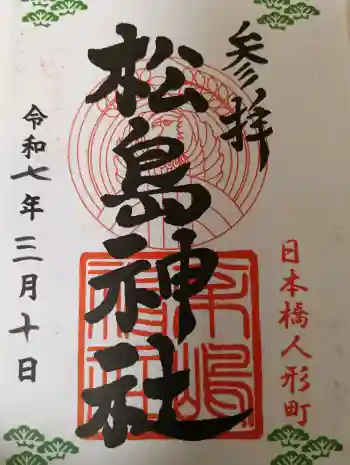 参拝
松島神社
日本橋人形町
令和七年三月十日